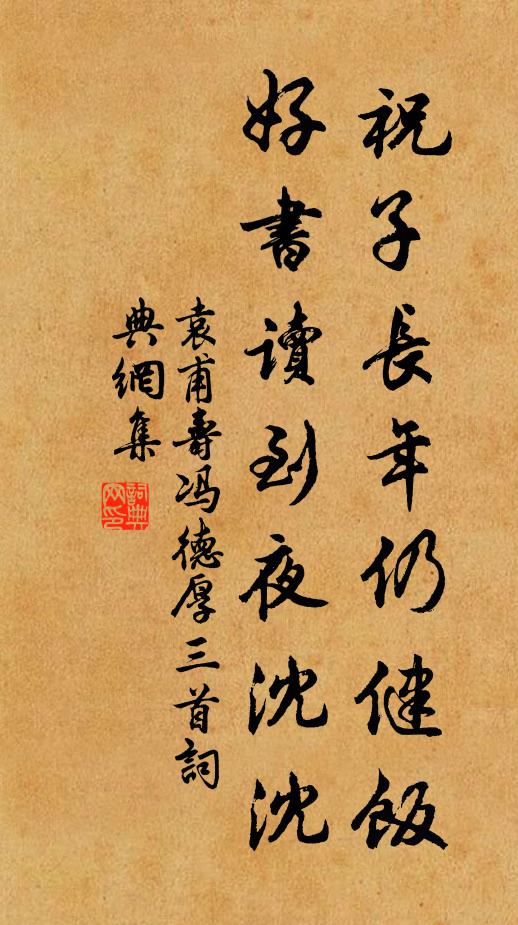 祝子長年仍健飯
好書讀到夜沈沈
袁甫壽冯德厚三首詞
典網集
詞典
网印